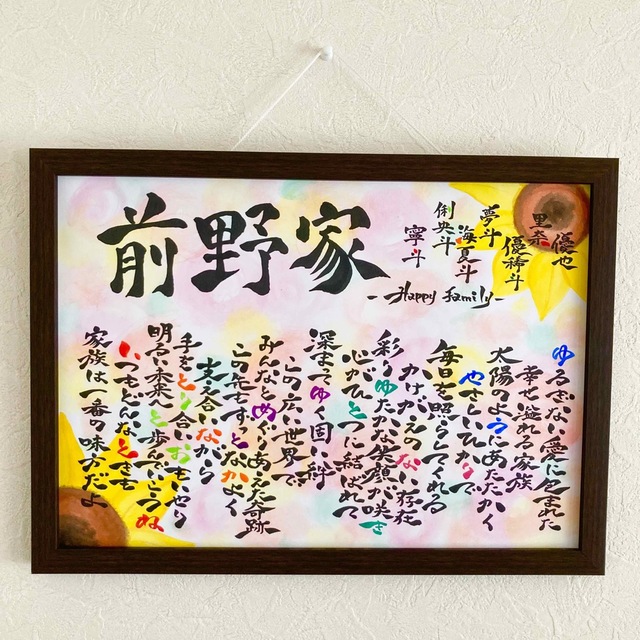 前野家
優也
里奈
優稀斗
夢斗
海夏斗
俐央斗
寧斗
-Happy family-
ゆるぎない愛に包まれた
幸せ溢れる家族
太陽のようにあたたかく
やさしいひかりで
毎日を照らしてくれる
かけがえのない存在
彩りゆたかな笑顔が咲き
心がひとつに結ばれて
深まってゆく固い絆
この広い世界で
みんなとめぐりあえた奇跡
この先もずっとなかよく
支え合いながら
手をとり合いおもいやり
明るい未来へと歩んでいこうね
いつもどんなときも
家族は一番の味方だよ